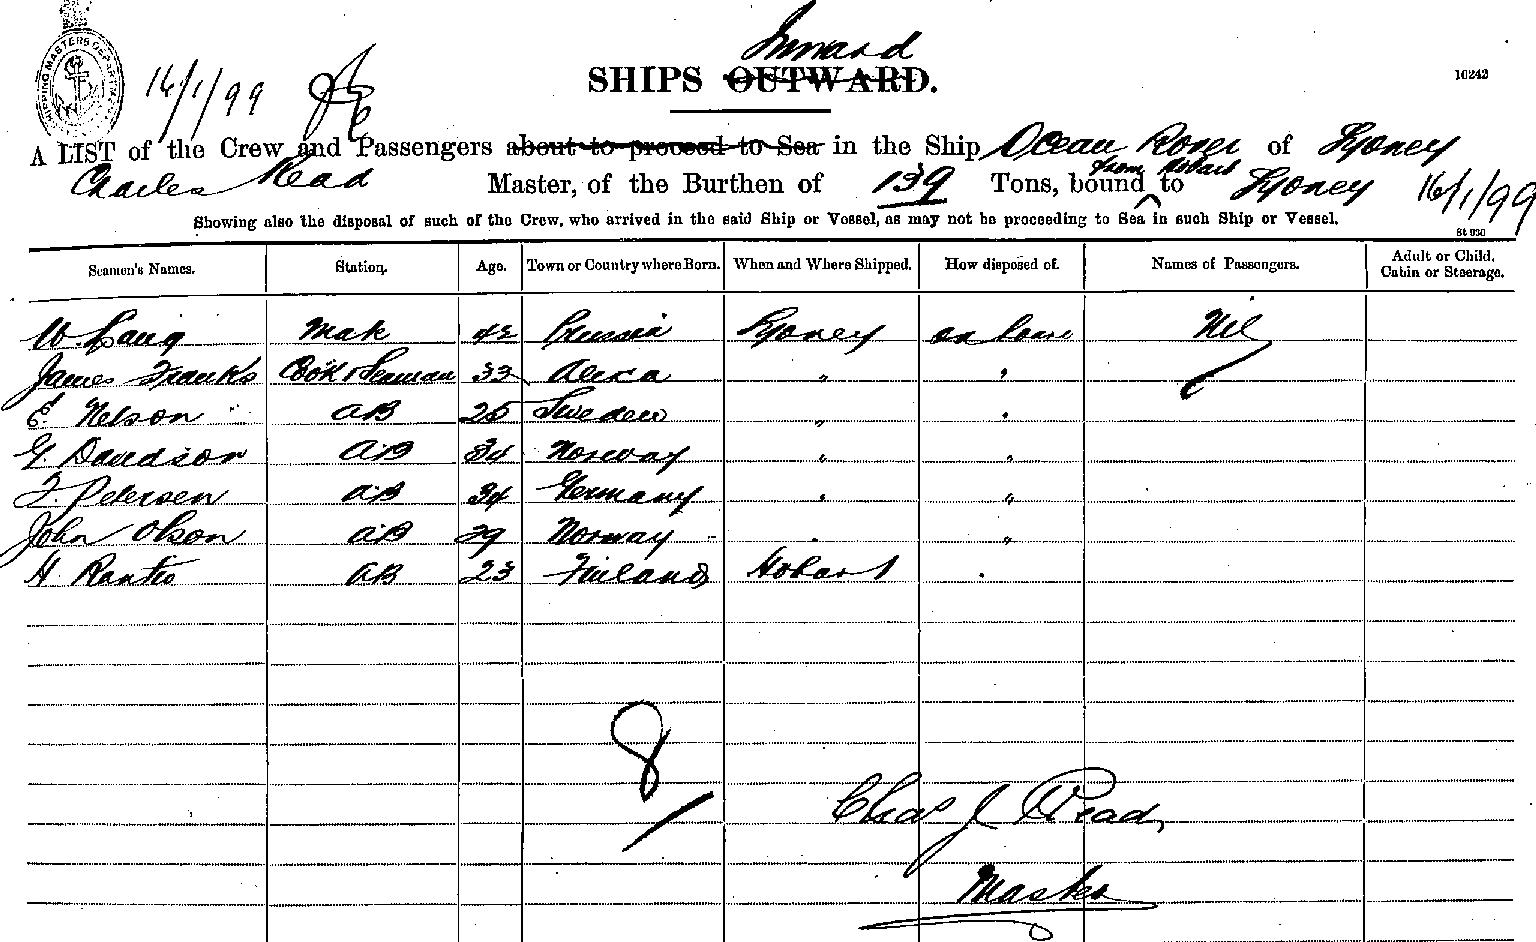 Inward
SHIPS OUTWARD.
10242
SHIPPING MASTERS DEPARTMENT
16/1/99
A LIST of the Crew and Passengers about to proceed to Sea in the Ship Ocean Rover of Sydney
from Hobart
Charles Read Master, of the Burthen of 139 Tons, bound to Sydney 16/1/99
Showing also the disposal of such of the Crew, who arrived in the said Ship or Vessel, as may not be proceeding to Sea in such Ship or Vessel.
St 930
Seamen's Names. Station. Age. Town or Country where Born. When and Where Shipped. How disposed of. Names of Passengers. Adult or Child, Cabin or Steerage.
W Lang Mate 42 Prussia Sydney on board Nil
James Franks Cook & Seaman 33 " "
E. Nelson AB 25 Sweden " "
G. Davidson AB 34 Norway " "
F. Petersen AB 34 Germany " "
John Olson AB 29 Norway " "
H. AB 23 Finland Hobart "
8
Chas J Read
Master